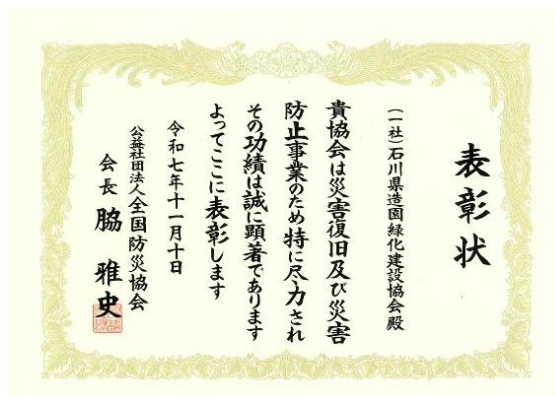 表彰状
(一社)石川県造園緑化建設協会殿
貴協会は災害復旧及び災害
防止事業のため特に尽力され
その功績は誠に顕著であります
よってここに表彰します
令和七年十一月十日
公益社団法人全国防災協会
会長 脇 雅史